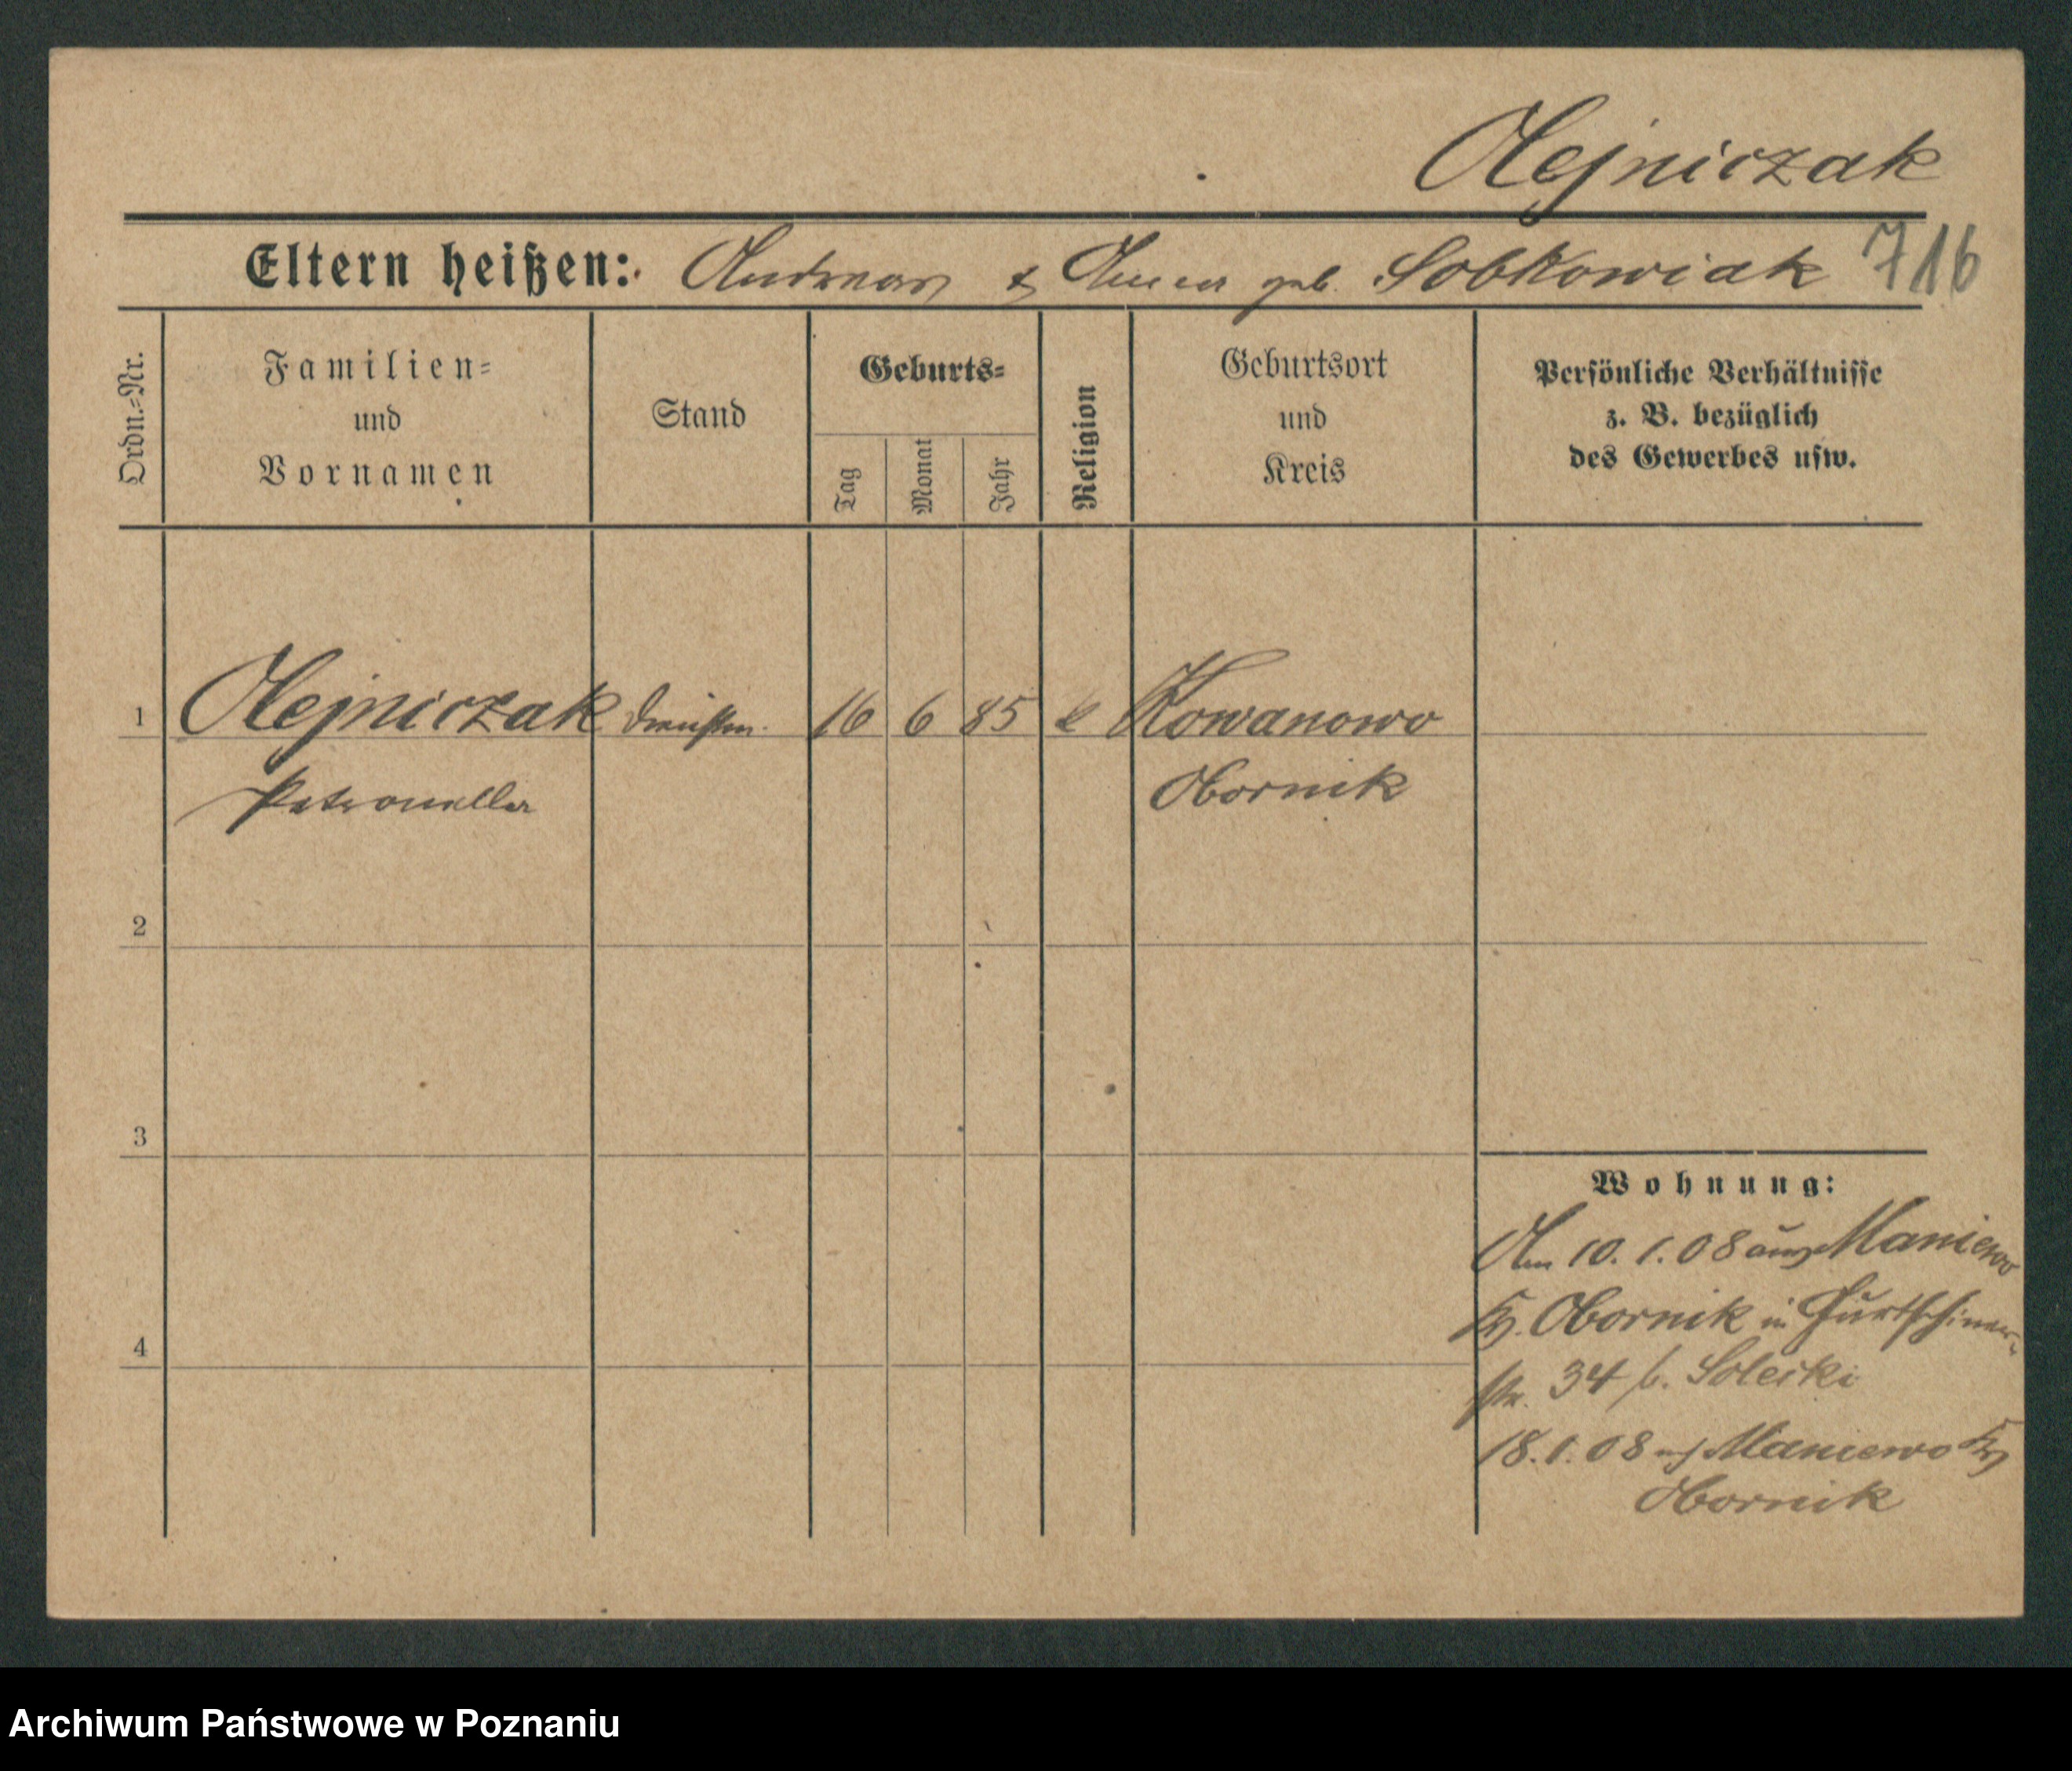 Olejniczak
Eltern heißen: Andreas & Anna geb. Sobkowiak 716
Ordn.-Nr.
Familien-
und
Vornamen
Stand
Geburts-
Tag
Monat
Jahr
Religion
Geburtsort
und
Kreis
Persönliche Verhältnisse
z. B. bezüglich
des Gewerbes usw.
1 Olejniczak 16 6 85 k Kowanowo
Petronella Obornik
2
3
4
Wohnung:
Am 10.1.08 aus Maniewo
Kr. Obornik in Gurtschiner-
str. 34 b. Solecki
18.1.08 Maniewo Kr
Obornik
Archiwum Państwowe w Poznaniu